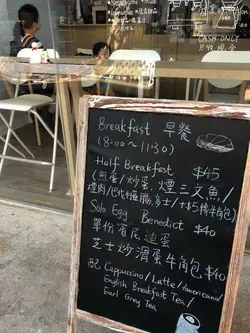 CASH ONLY
只收現金
Breakfast 早餐
(8:00~11:30)
Half Breakfast $45
(煎蛋/炒蛋,煙三文魚/
煙肉/ 腸,多士/+$5轉牛角包)
Solo Egg Benedict $40
單份賓尼迪蛋
芝士炒滑蛋牛角包 $40
配 Cappuccino/Latte/Americano/
English Breakfast Tea/
Earl Grey Tea